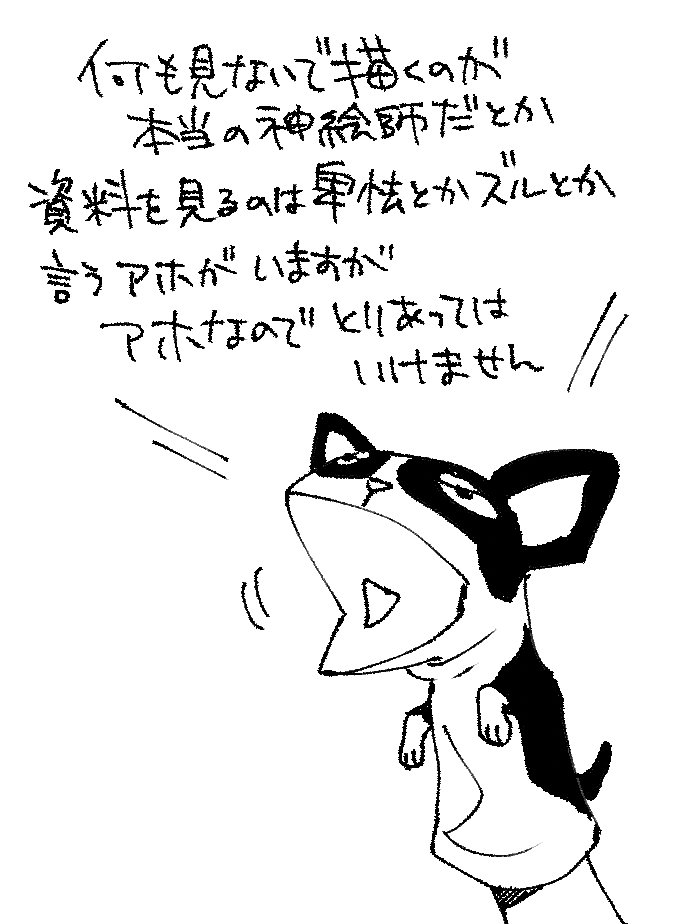 何も見ないで描くのが
本当の神絵師だとか
資料を見るのは卑怯とかズルとか
言うアホがいますが
アホなので とりあっては
いけません